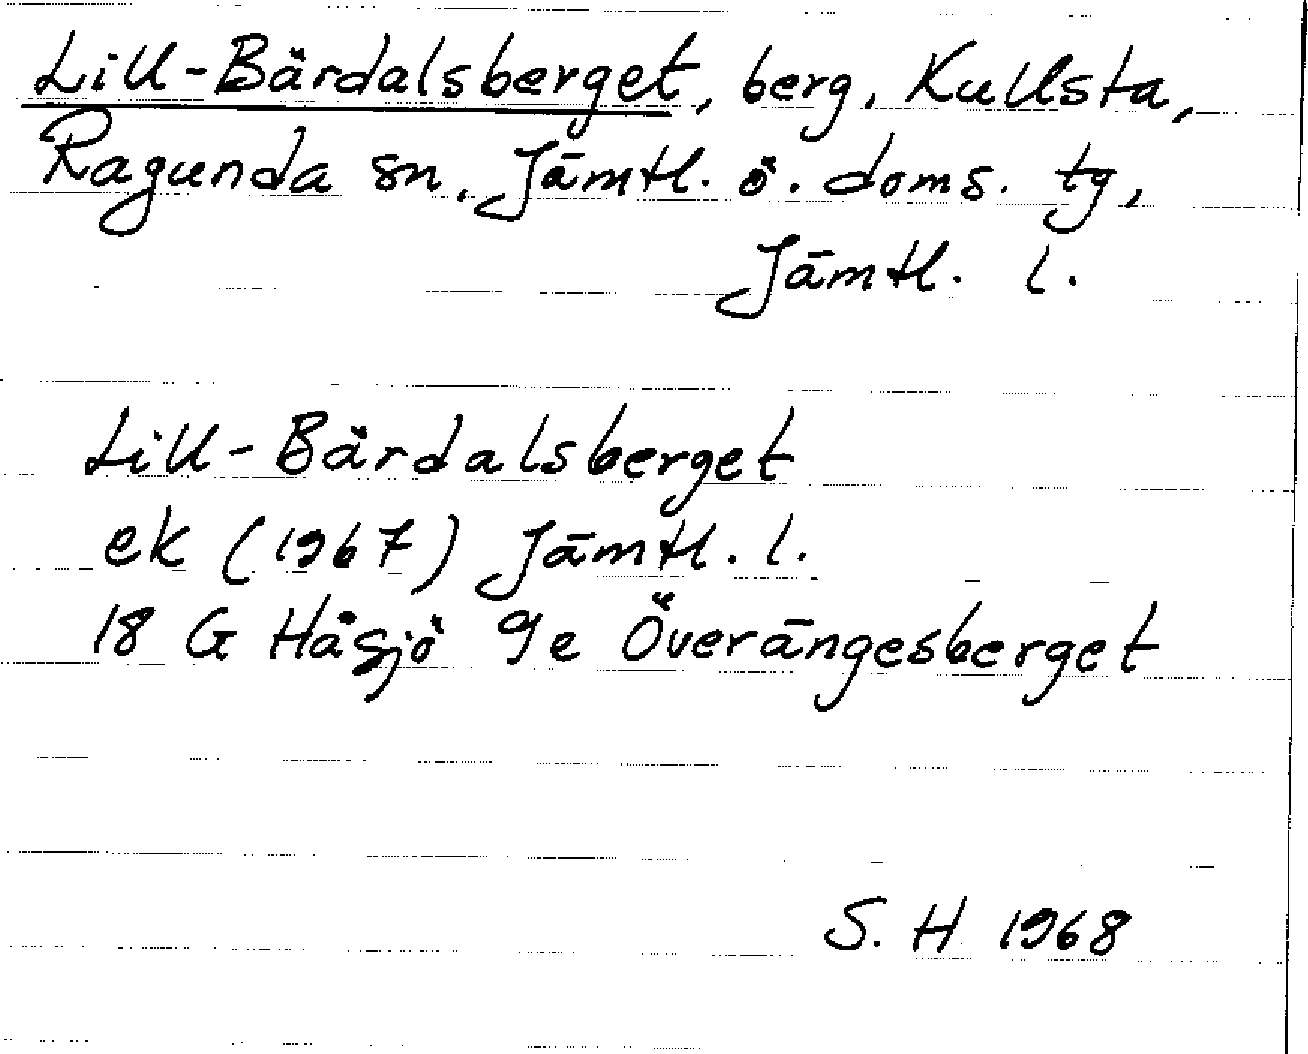 Lill-Bärdalsberget, berg, Kullsta,
Ragunda sn, Jämtl. ö. doms. tg,
Jämtl. l.
Lill-Bärdalsberget
ek (1967) Jämtl. l.
18 G Håsjö 9e Överängesberget
S. H 1968